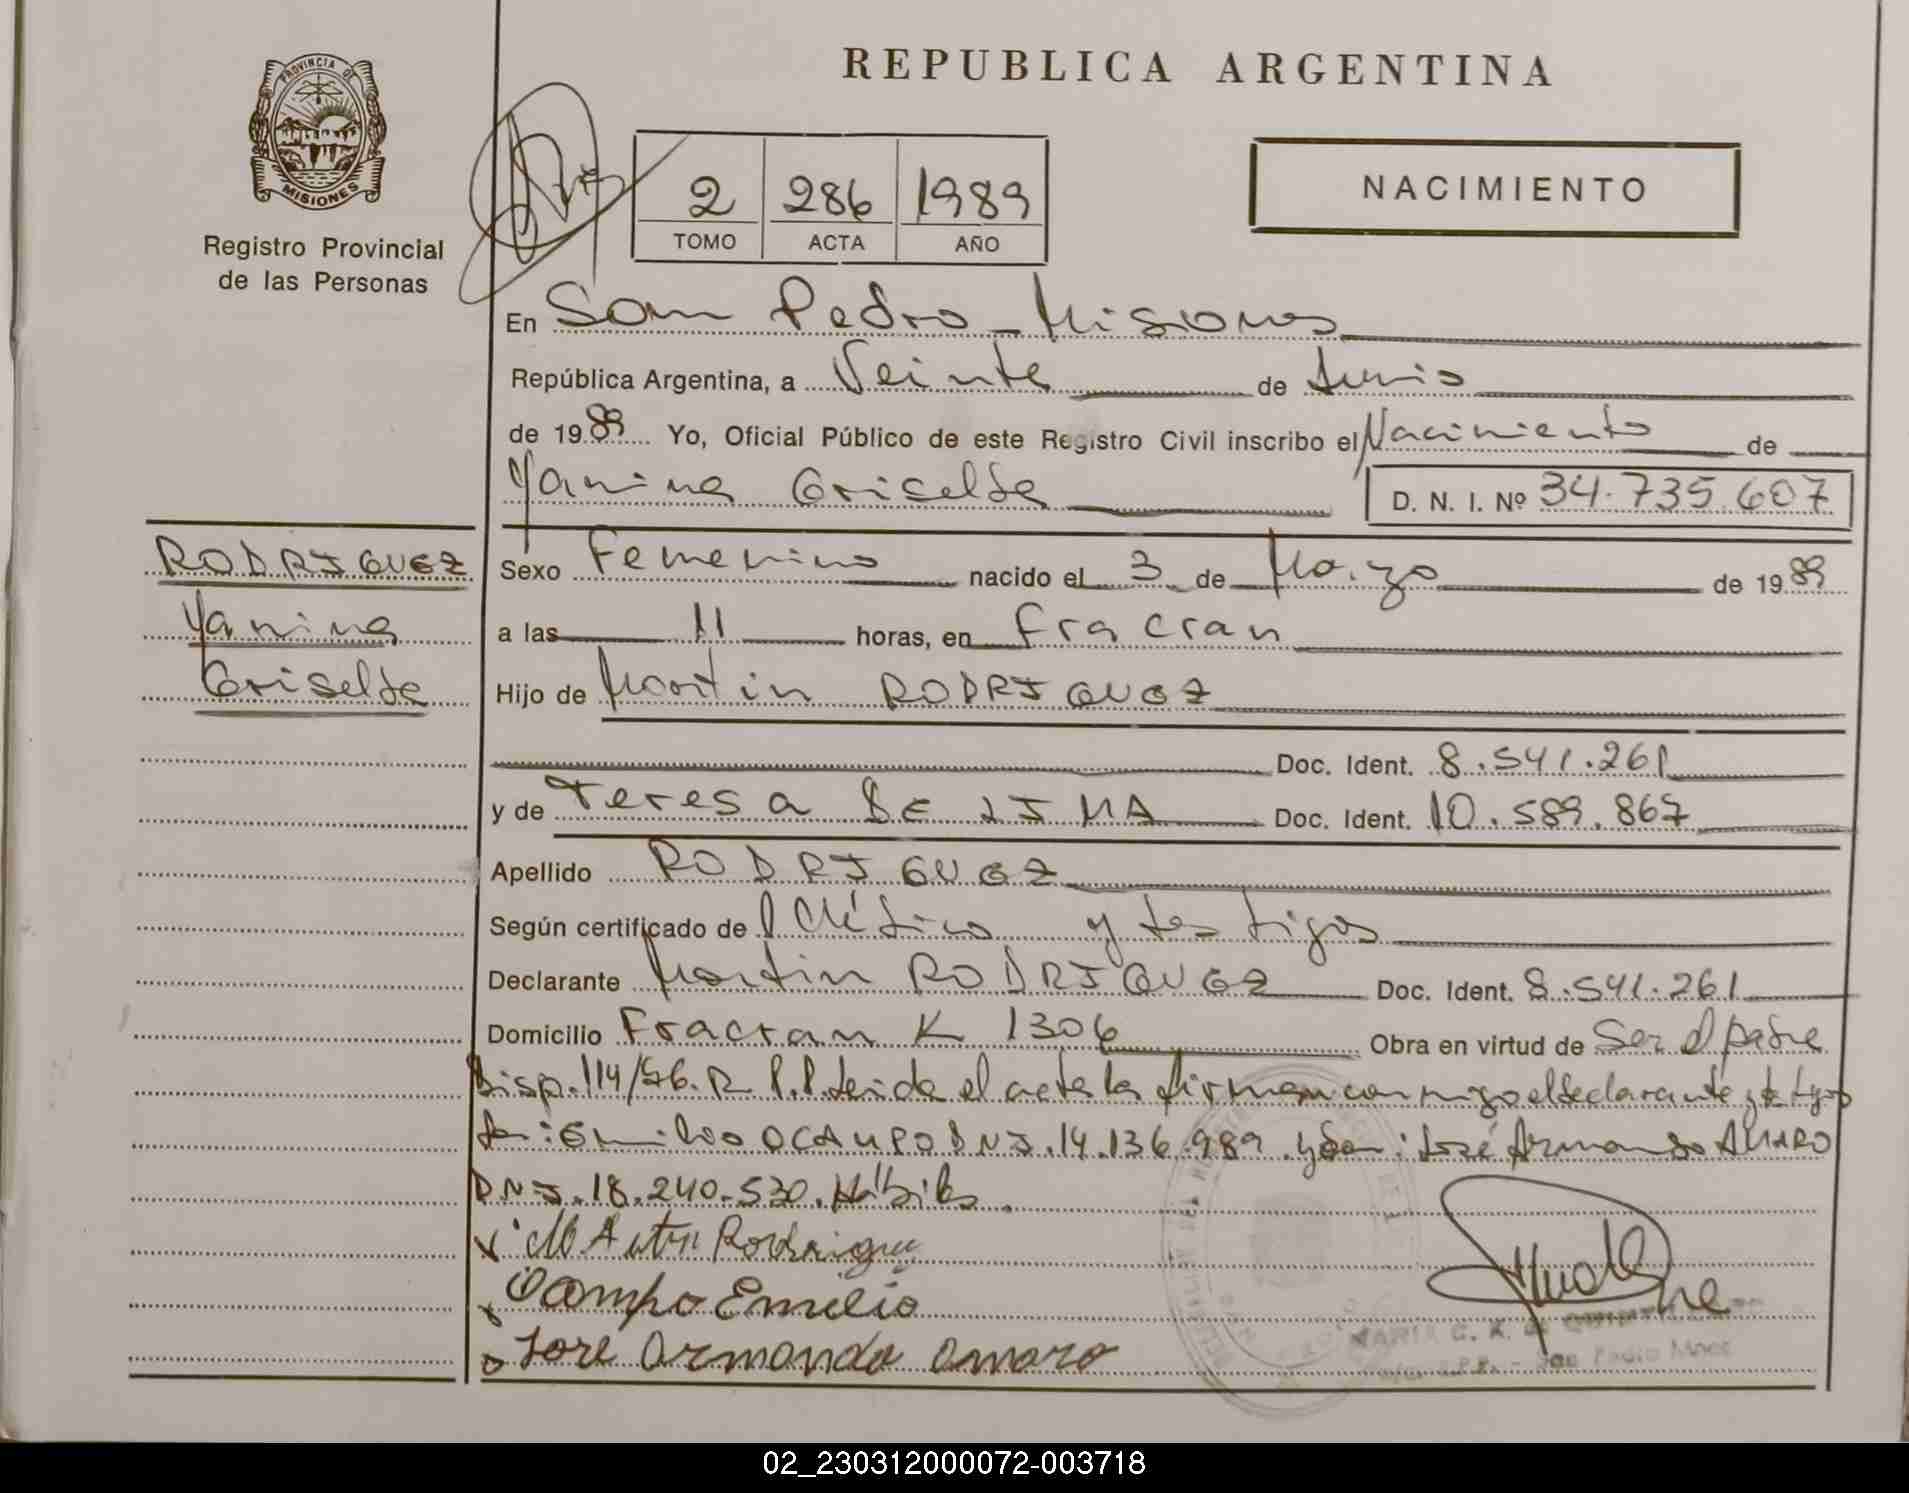 PROVINCIA DE
MISIONES
Registro Provincial
de las Personas
REPUBLICA ARGENTINA
2 286 1989
TOMO ACTA AÑO
NACIMIENTO
En San Pedro - Misiones
República Argentina, a Veinte de Junio
de 1989 Yo, Oficial Público de este Registro Civil inscribo el Nacimiento de
Yanina Griselda D. N. I. Nº 34.735.607
RODRIGUEZ
Yanina
Griselda
Sexo Femenino nacido el 3 de Marzo de 1989
a las 11 horas, en Fracran
Hijo de Martin RODRIGUEZ
Doc. Ident. 8.541.261
y de Teresa DE LIMA Doc. Ident. 10.589.867
Apellido RODRIGUEZ
Según certificado de Médico y testigos
Declarante Martin RODRIGUEZ Doc. Ident. 8.541.261
Domicilio Fracran K 1306 Obra en virtud de Ser el padre
Disp. 114/76. R. P. P. Leida el acta la firman conmigo el declarante y testigos
Emilio OCAMPO DNI. 14.136.989 y José Armando AMARO
DNI. 18.240.530. Hábiles.
Martin Rodrigue
Ocampo Emilio
Jose Armando amaro
MARIA C.
San Pedro Mnes
02_230312000072-003718